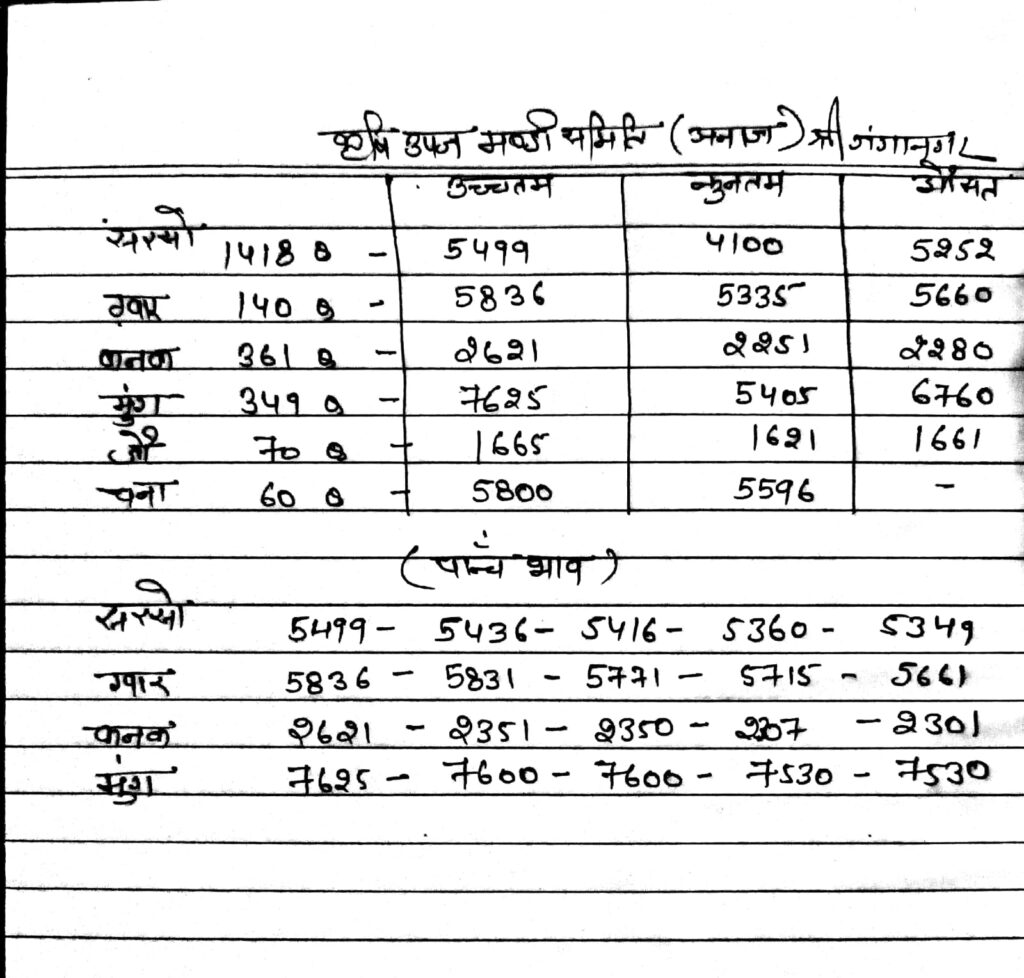 कृषि उपज मण्डी समिति (अनाज) श्री गंगानगर
उच्चतम न्युनतम औसत
सरसों 1418 Q - 5499 4100 5252
ग्वार 140 Q - 5836 5335 5660
कनक 361 Q - 2621 2251 2280
मुंग 349 Q - 7625 5405 6760
जौ 70 Q - 1665 1621 1661
चना 60 Q - 5800 5596 -
(पान्चं भाव)
सरसों 5499 - 5436 - 5416 - 5360 - 5349
ग्वार 5836 - 5831 - 5771 - 5715 - 5661
कनक 2621 - 2351 - 2350 - 2307 - 2301
मुंग 7625 - 7600 - 7600 - 7530 - 7530